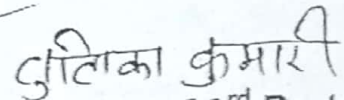 लुतिका कुमारी